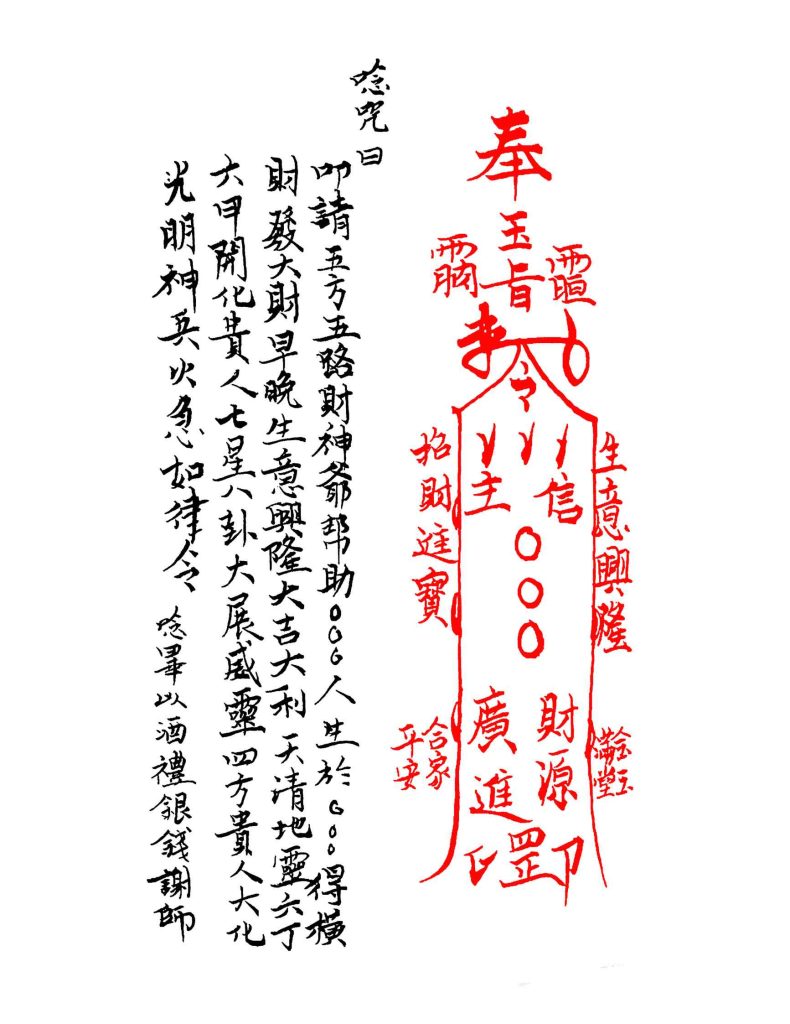 奉
玉旨
令
生意興隆
招財進寶
信
主
○○○
財源
廣進
罡印
金玉
滿堂
合家
平安
唸咒曰
叩請五方五路財神爺幫助○○○人生於○○○得橫
財發大財早晚生意興隆大吉大利天清地靈六丁
六甲開化貴人七星八卦大展威靈四方貴人大化
光明神兵火急如律令 唸畢以酒禮銀錢謝師